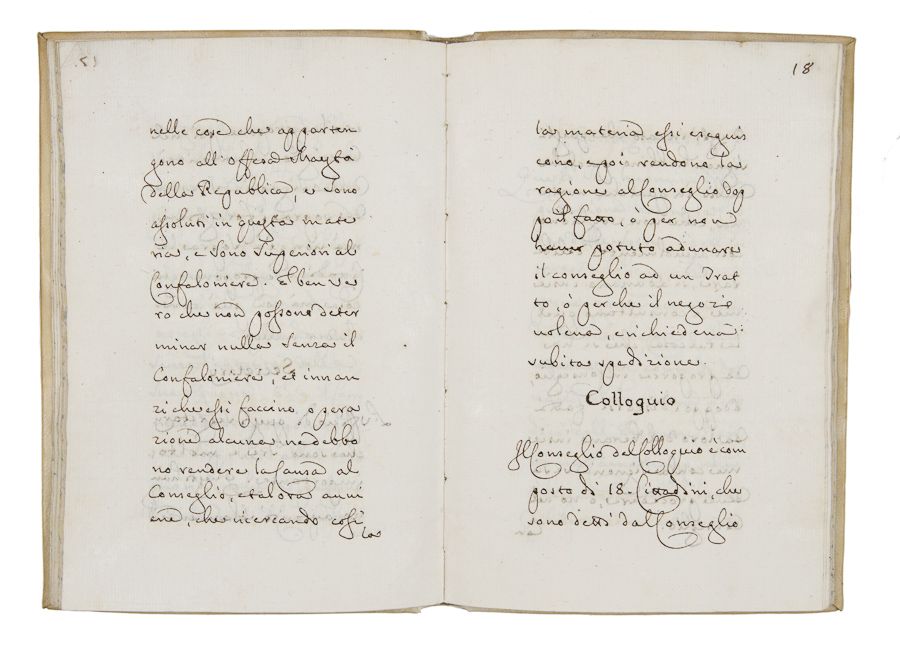 nelle cose che apparten
gono all'offesa Maestà
della Republica, e sono
assoluti in questa mate
ria, e sono superiori al
Confaloniere. E ben ve
ro che non possono deter
minar nulla senza il
Confaloniere, et innan
zi che essi faccino, opera
zione alcuna ne debbo
no rendere la Causa al
Conseglio, et alora avui
ene, che ricercando cosi
la
18
la materia essi eseguis
cono, e poi rendono la
ragione al Conseglio dop
po il fatto, ò per non
haver potuto adunare
il conseglio ad un Trat
to, ò perche il negozio
voleva, e richiedeva
subita spedizione.
Colloquio
Il Conseglio del Colloquio è com
posto di 18. Cittadini, che
sono detti dal Conseglio